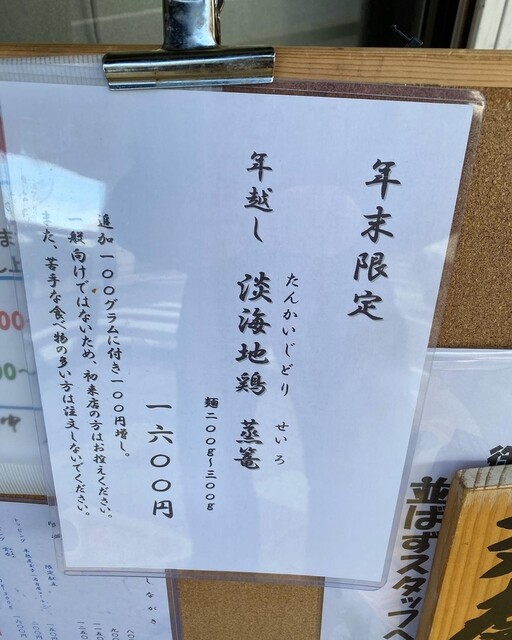 年末限定
たんかいじどり せいろ
年越し 淡海地鶏 蒸篭
麺二〇〇g〜三〇〇g
一六〇〇円
追加一〇〇グラムに付き一〇〇円増し。
一般向けではないため、初来店の方はお控えください。
また、苦手な食べ物の多い方は注文しないでください。
並ばずスタッフへ